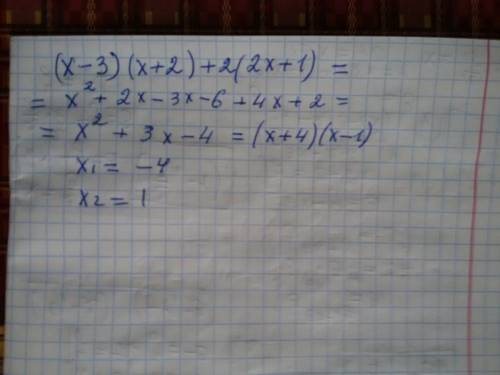 (x-3)(x+2)+2(2x+1) =
= x² + 2x-3x-6+4x+2=
= x² + 3x-4 =(x+4)(x-1)
x₁= -4
x₂= 1